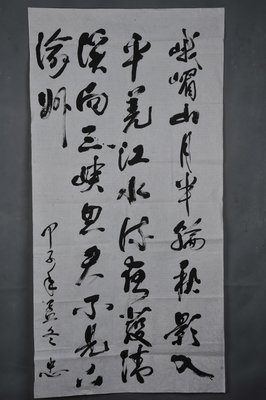 峨嵋山月半輪秋影入
平羌江水流夜發清
溪向三峽思君不見下
渝州
甲子年孟冬忠